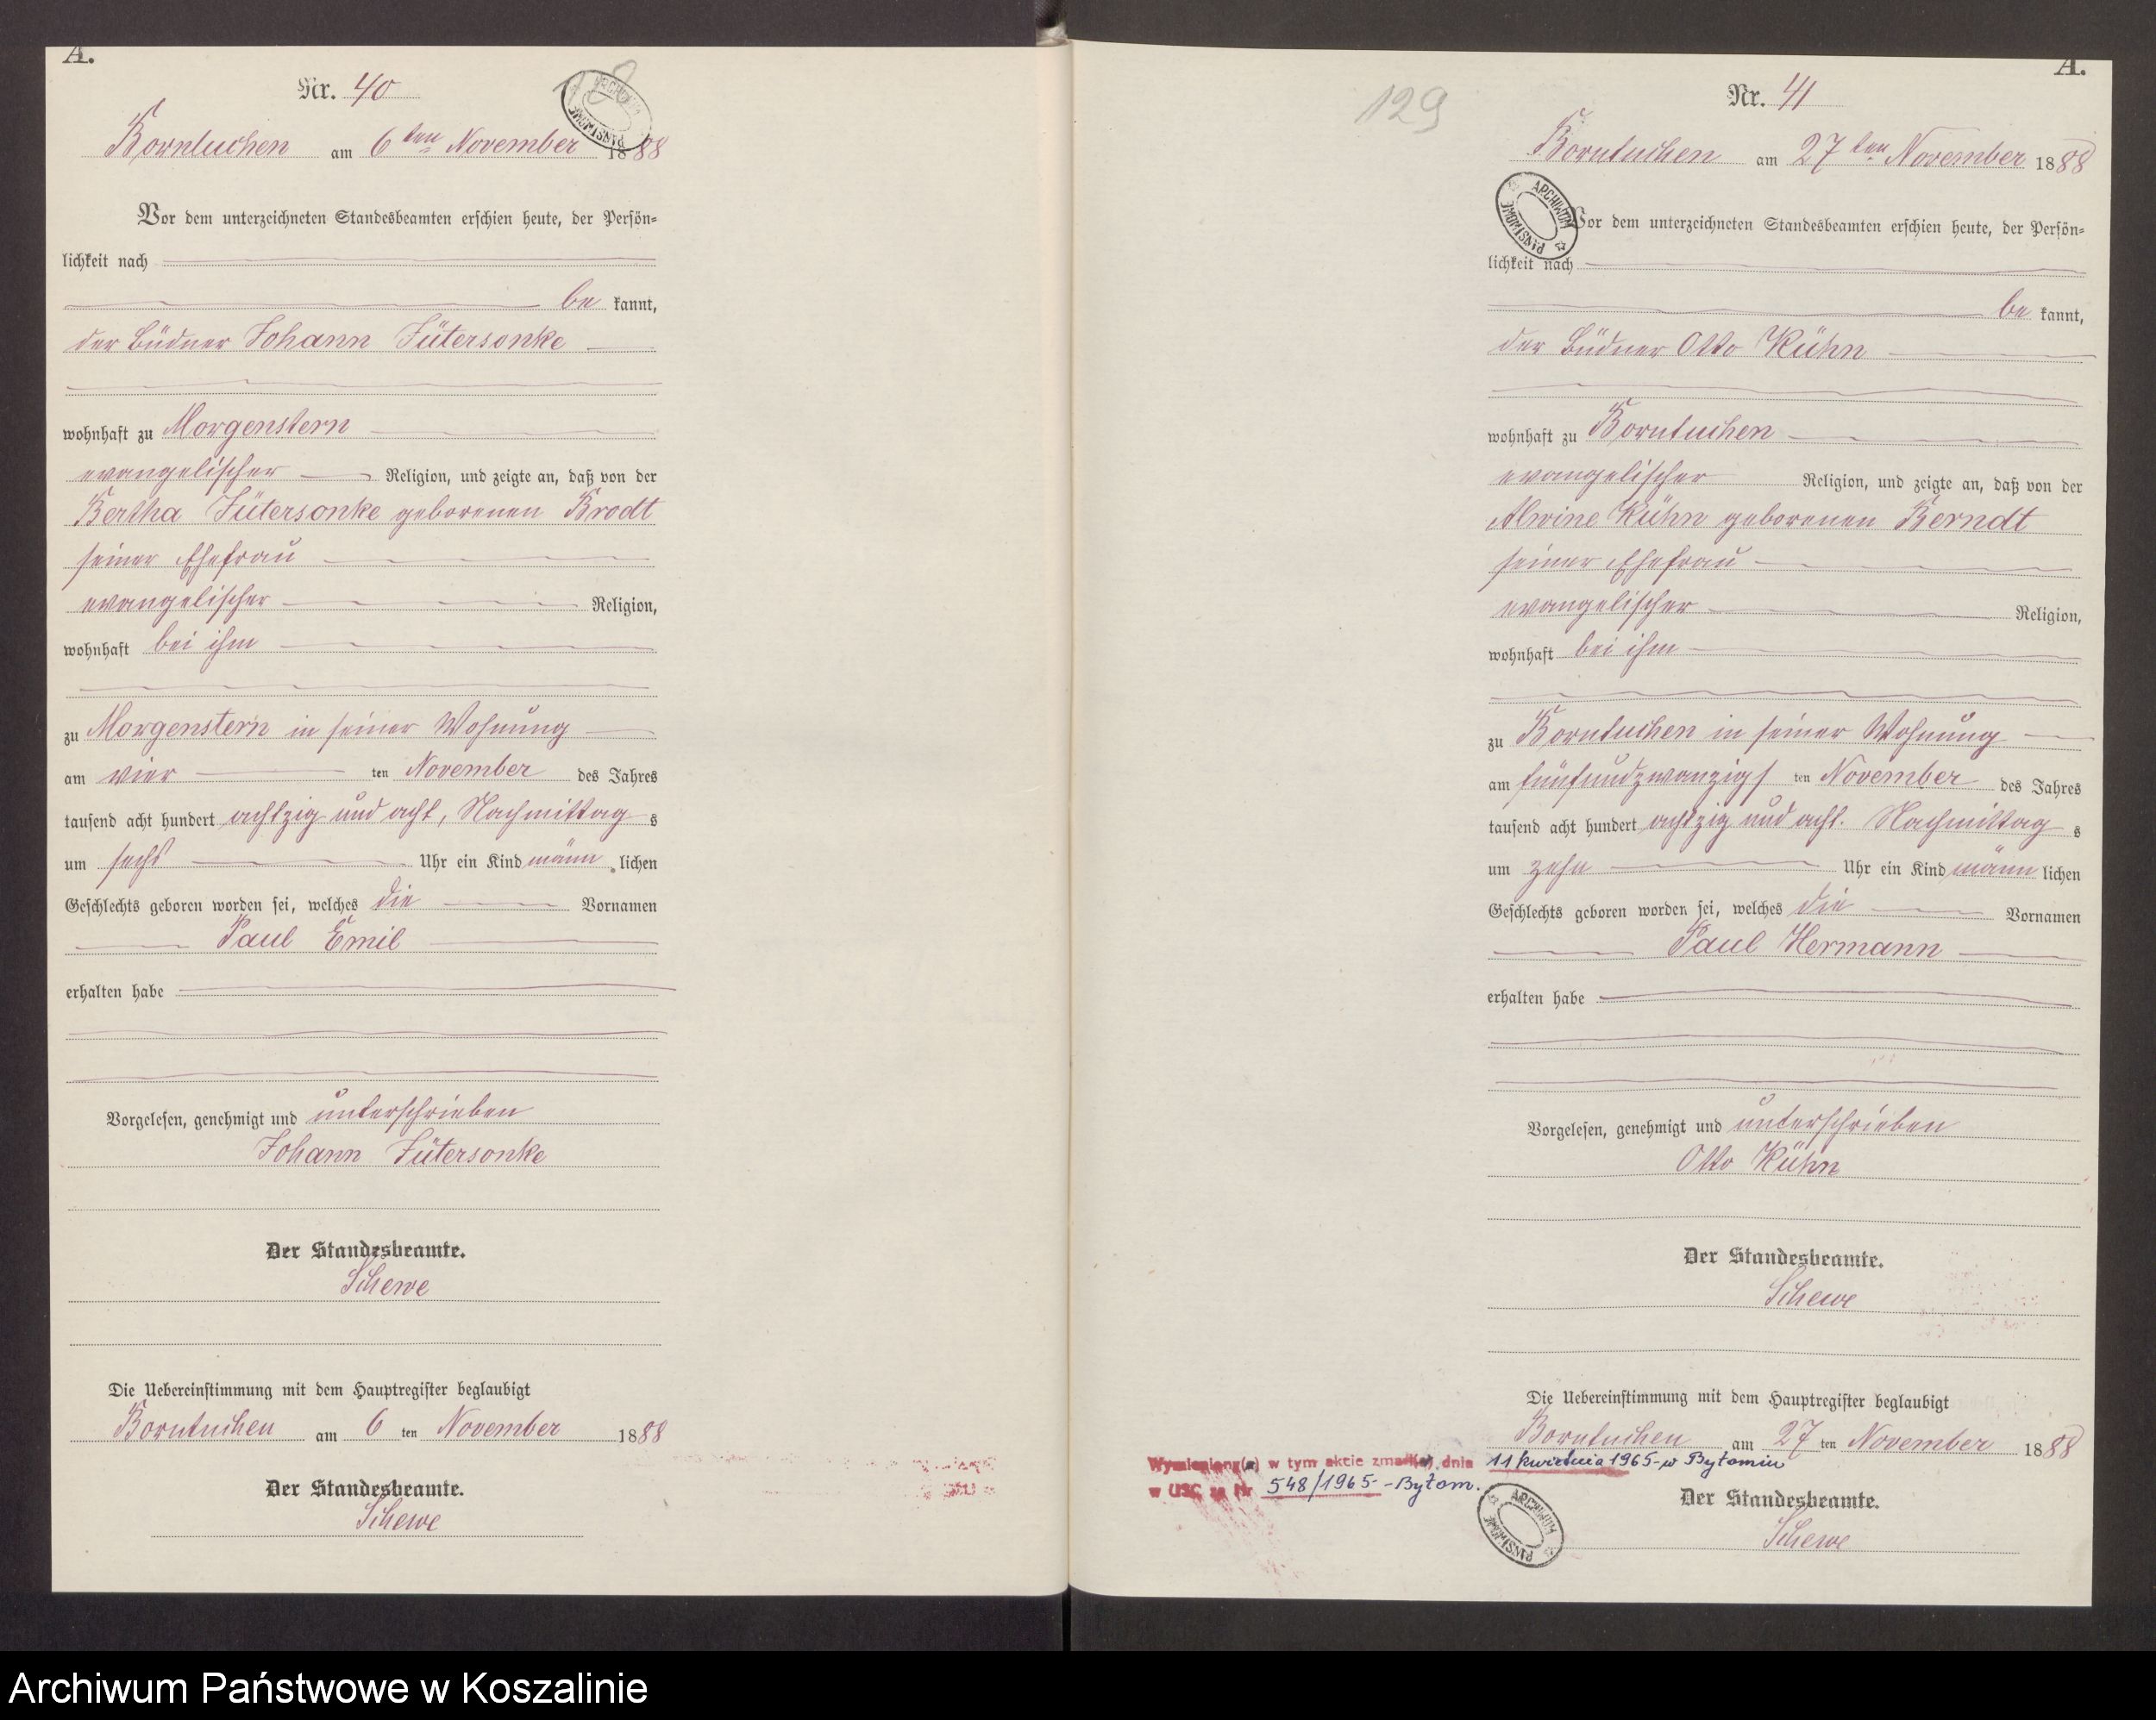 A.
Nr. 40
ARCHIWUM PAŃSTWOWE
Borntuchen am 6ten November 1888
Vor dem unterzeichneten Standesbeamten erschien heute, der Persön-
lichkeit nach
be kannt,
der Büdner Johann Jütersonke
wohnhaft zu Morgenstern
evangelischer Religion, und zeigte an, daß von der
Bertha Jütersonke geborenen Brodt
seiner Ehefrau
evangelischer Religion,
wohnhaft bei ihm
zu Morgenstern in seiner Wohnung
am vier ten November des Jahres
tausend acht hundert achtzig und acht, Nachmittag s
um sechs Uhr ein Kind männ lichen
Geschlechts geboren worden sei, welches die Vornamen
Paul Emil
erhalten habe
Vorgelesen, genehmigt und unterschrieben
Johann Jütersonke
Der Standesbeamte.
Schewe
Die Uebereinstimmung mit dem Hauptregister beglaubigt
Borntuchen am 6 ten November 1888
Der Standesbeamte.
Schewe
A.
129
Nr. 41
Borntuchen am 27ten November 1888
ARCHIWUM PAŃSTWOWE
Vor dem unterzeichneten Standesbeamten erschien heute, der Persön-
lichkeit nach
be kannt,
der Büdner Otto Kühn
wohnhaft zu Borntuchen
evangelischer Religion, und zeigte an, daß von der
Alwine Kühn geborenen Berndt
seiner Ehefrau
evangelischer Religion,
wohnhaft bei ihm
zu Borntuchen in seiner Wohnung
am fünfundzwanzigs ten November des Jahres
tausend acht hundert achtzig und acht. Nachmittag s
um zehn Uhr ein Kind männ lichen
Geschlechts geboren worden sei, welches die Vornamen
Paul Hermann
erhalten habe
Vorgelesen, genehmigt und unterschrieben
Otto Kühn
Der Standesbeamte.
Schewe
Die Uebereinstimmung mit dem Hauptregister beglaubigt
Borntuchen am 27 ten November 1888
Wymieniony(a) w tym akcie zmarł(a) dnia 11 kwietnia 1965 - w Bytomiu
w USC za Nr 548/1965 - Bytom.
Der Standesbeamte.
ARCHIWUM PAŃSTWOWE
Schewe
Archiwum Państwowe w Koszalinie